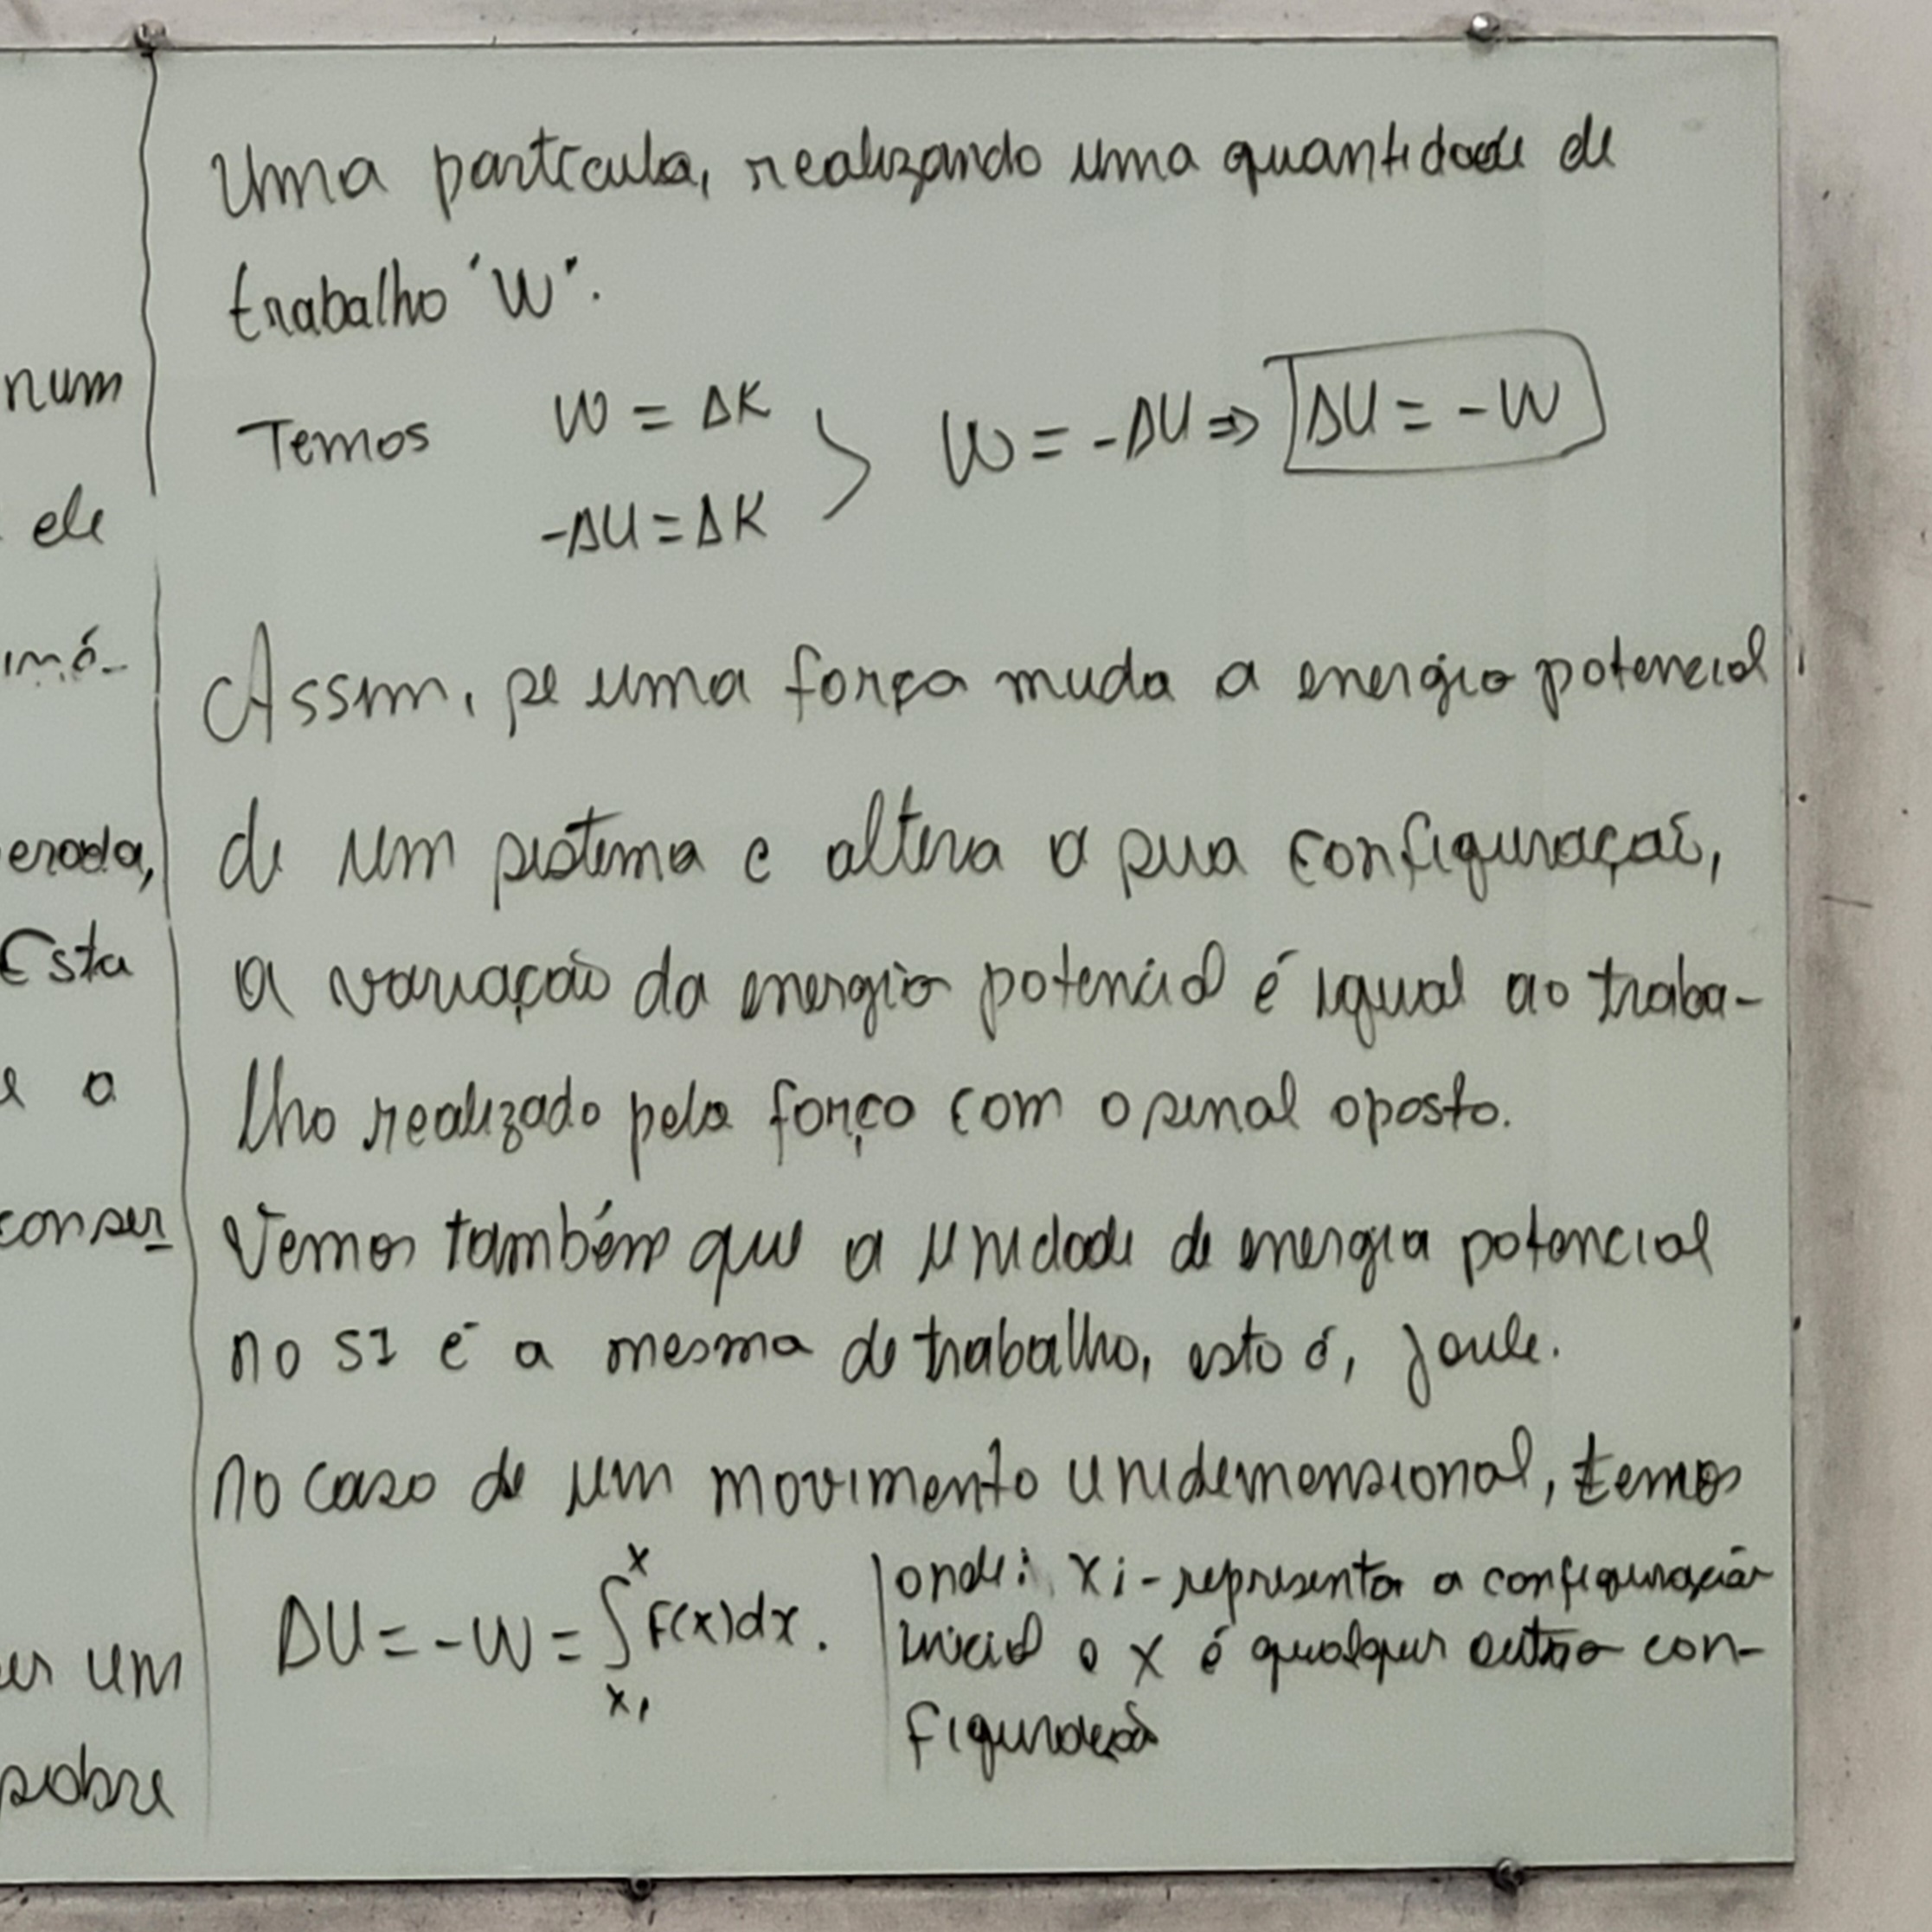 num
ele
imó-
erada,
Esta
e a
conser
er um
sobre
Uma partícula, realizando uma quantidade de
trabalho "W".
Temos W = ΔK
-ΔU = ΔK
W = -ΔU ⇒ ΔU = -W
Assim, se uma força muda a energia potencial
de um sistema e altera a sua configuração,
a variação da energia potencial é igual ao traba-
lho realizado pela força com o sinal oposto.
Vemos também que a unidade de energia potencial
no SI é a mesma de trabalho, isto é, joule.
No caso de um movimento unidimensional, temos
ΔU = -W = ∫ₓᵢˣ F(x)dx.
onde: xi - representa a configuração
inicial e x é qualquer outra con-
figuração